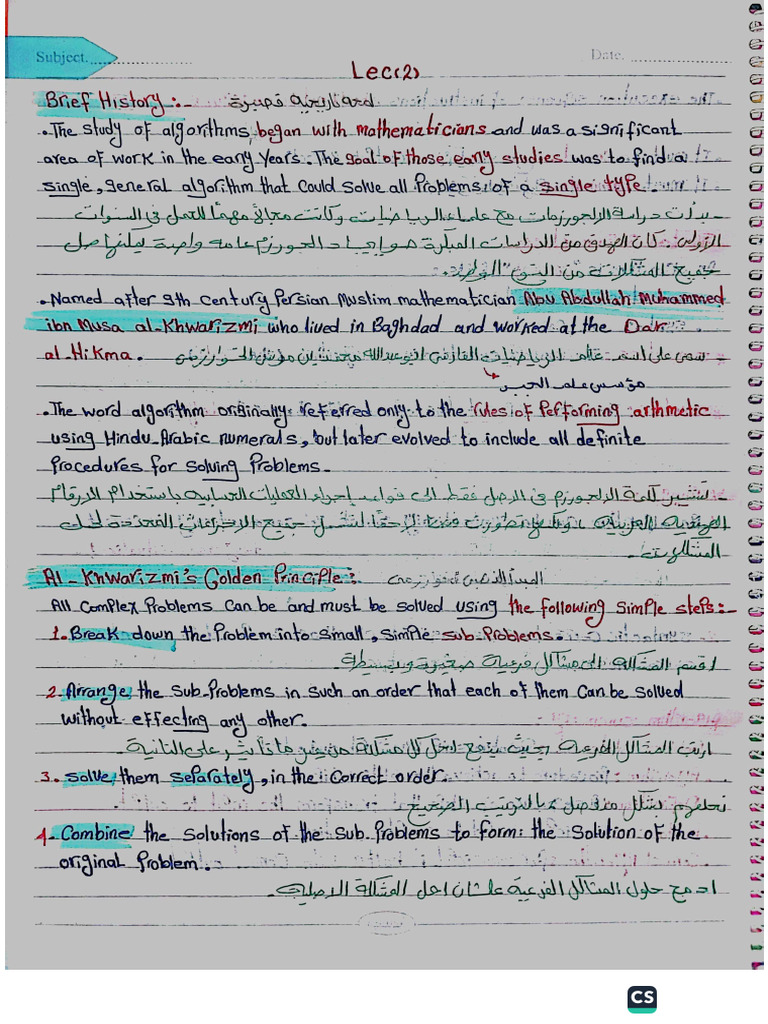 Subject.
Date.
Lec(2)
Brief History:- لمحة تاريخية قصيرة
.The study of algorithms, began with mathematicians and was a significant
area of work in the early years. The goal of those early studies was to find a
single, general algorithm that could solve all problems of a single type.
- بدأت دراسة الالجورزمات مع علماء الرياضيات وكانت مجالاً مهمًا للعمل في السنوات
الأولى. كان الهدف من الدراسات المبكرة هو إيجاد الجورزم عامه واحدة يمكنها حل
جميع المشكلات من النوع الواحد.
.Named after 9th century Persian Muslim mathematician Abu Abdullah Muhammed
ibn Musa al-Khwarizmi who lived in Baghdad and worked at the Dar
al-Hikma. سمى على اسم عالم الرياضيات الفارسي ابوعبدالله
مؤسس علم الجبر
.The word algorithm originally referred only to the rules of performing arthmetic
using Hindu-Arabic numerals, but later evolved to include all definite
Procedures for solving Problems.
- تشير كلمة الالجورزم في الاصل فقط الى قواعد إجراء العمليات الحسابيه باستخدام الارقام
العربيه لاحقًا لتشمل جميع المحددة لحل
المشكلات.
Al-Khwarizmi's Golden Principle: المبدأ الذهبي
All Complex Problems Can be and must be solved using the following simple steps:-
1. Break down the Problem into small, simple sub-problems.
اقسم المشكلة الى مشاكل فرعية صغيرة وبسيطة.
2. Arrange the sub-Problems in such an order that each of them Can be solved
without effecting any other.
ارتب المشاكل الفرعية بحيث ينفع احل كل مشكلة من غير ماتأثر على التانية.
3. solve them separately, in the correct order.
نحلهم بشكل منفصل بالترتيب الصحيح
4. Combine the solutions of the sub-Problems to form the solution of the
original Problem.
ادمج حلول المشاكل الفرعية علشان احل المشكلة الاصلية.
CS